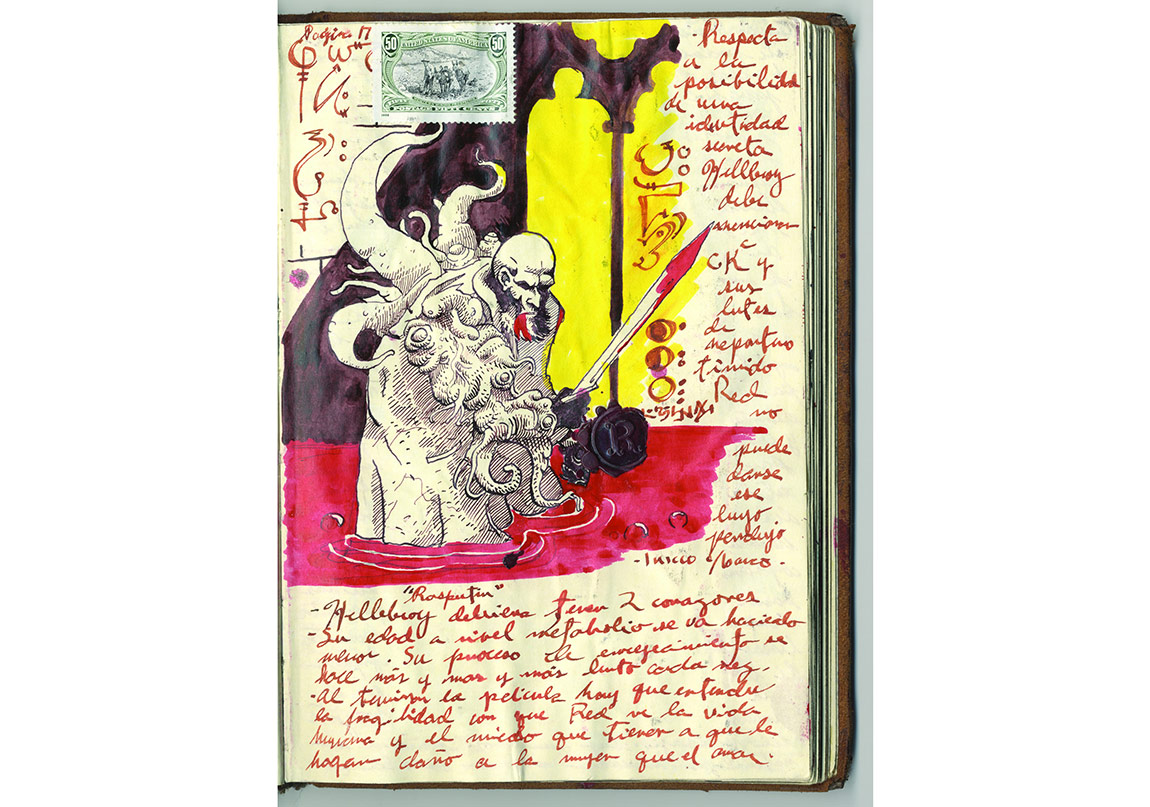 Página 17
50 UNITED STATES OF AMERICA 50
POSTAGE FIFTY CENTS
- Respecta
a la
posibilidad
de una
identidad
secreta
Hellboy
debe
mencionar
CK y
sus
lentes
de
reportero
timido
Red
no
puede
darse
ese
lujo
pendejo
- Inicio c/barco.
R
"Rasputin"
- Hellboy debiera tener 2 corazones
- Su edad a nivel metabolico se va haciendo
menor. Su proceso de envejecimiento se
hace más y mas y más lento cada vez.
- Al terminar la película hay que entender
la fragilidad con que Red ve la vida
humana y el miedo que tiene a que le
hagan daño a la mujer que el ama.